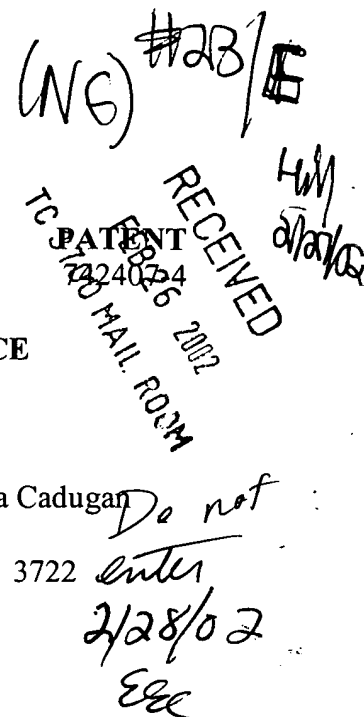 (NE) #23/E
RECEIVED
FEB 26 2002
TC 3700 MAIL ROOM
PATENT
742407-4
CE
a Cadugan
3722
Do not
enter
2/28/02